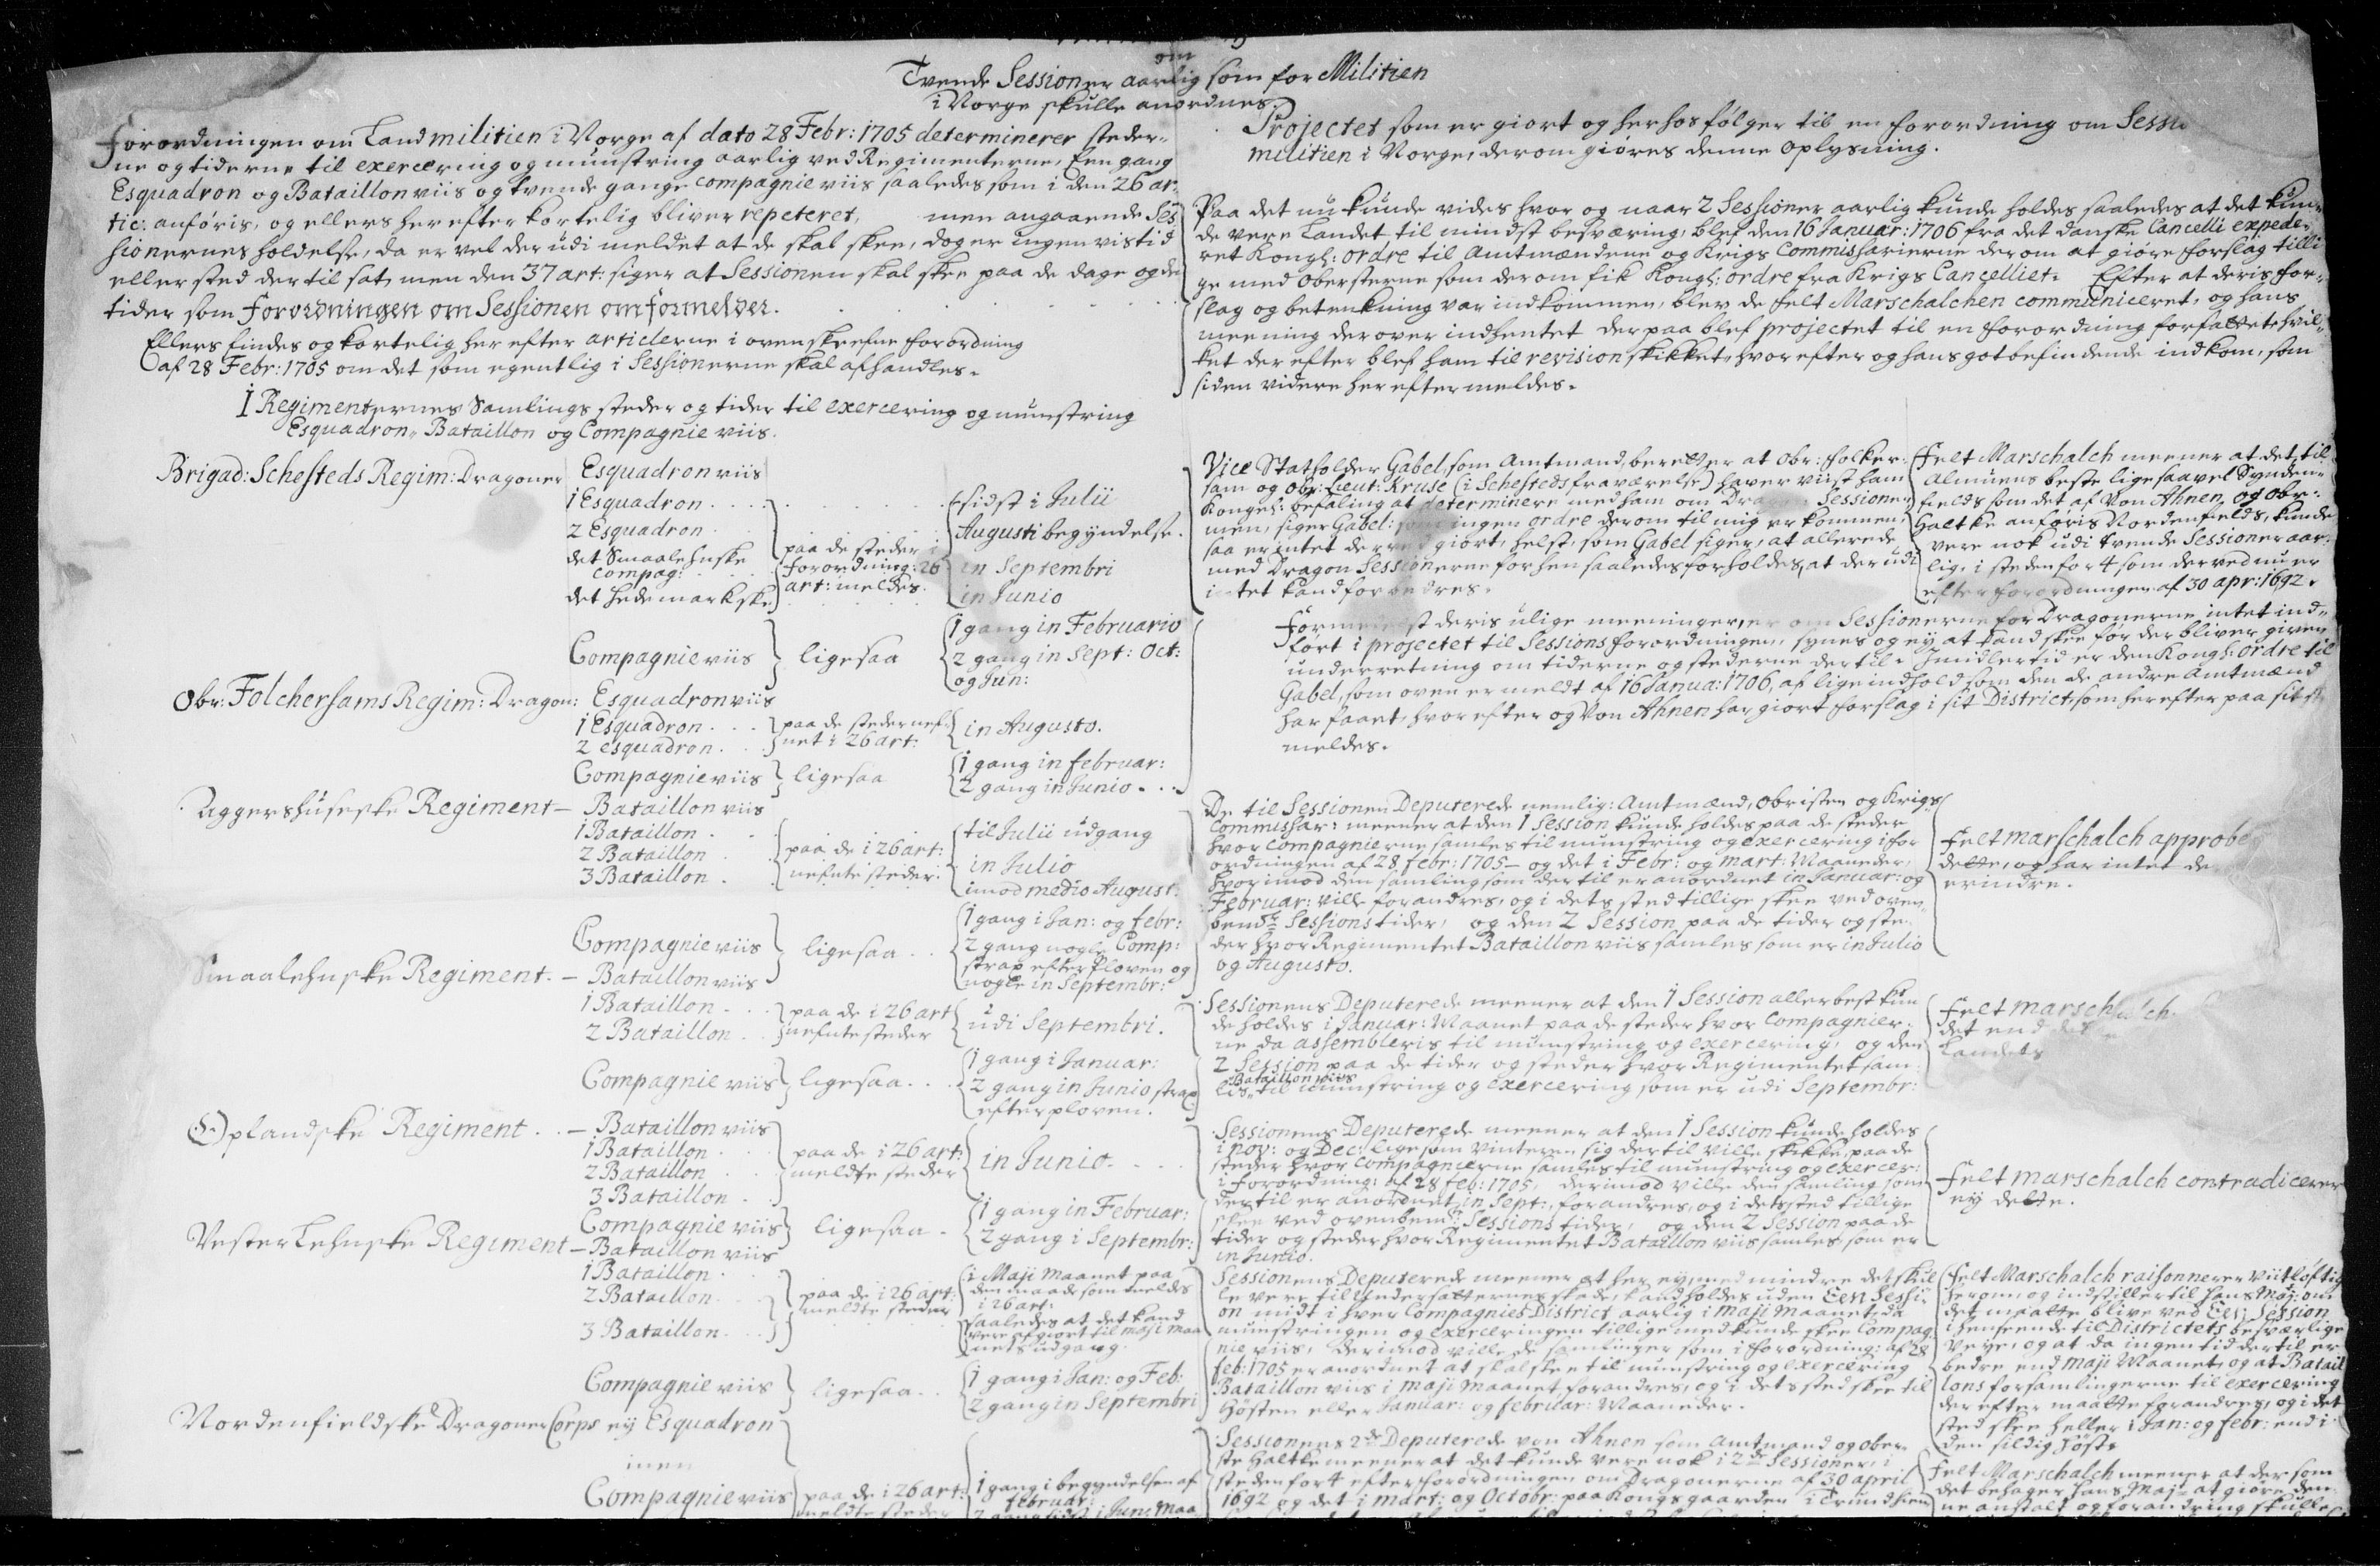 om
Tvende Sessioner aarlig som for Militien
i Norge skulle anordnes.
Forordningen om Landmilitien i Norge af dato 28 Febr: 1705 determinerer steder-
ne og tiderne til exercering og munstring aarlig ved Regimenterne, Een gang
Esquadron og Bataillon viis og tvende gange compagnie viis saaledes som i den 26 ar-
tic: anføris, og ellers her efter kortelig bliver repeteret, men angaaende Ses
sionernes holdelse, da er vel der udi meldet at de skal skee, dog er ingen vis tid
eller sted der til sat, men den 37 art: siger at Sessionen skal skee paa de dage og de
tider som Forordningen om Sessionen omformelder.
Ellers findes og kortelig her efter articlerne i ovenskrefne forordning
af 28 Febr: 1705 om det som egentlig i Sessionerne skal afhandles.
I Regimenternes Samlings steder og tider til exercering og munstring
Esquadron- Bataillon og Compagnie viis.
Brigad: Schesteds Regim: Dragoner Esquadron viis
1 Esquadron sidst i Julii
2 Esquadron Augusti begyndelse.
det Smaalehnske compag: paa de steder i forordning: 26 art: meldes. in Septembri
det Hedemarkske in Junio
Compagnie viis ligesaa 1 gang in Februario
2 gang in Sept: Oct:
og Jun:
Obr: Folchersams Regim: Dragon: Esquadron viis
1 Esquadron paa de steder nef- in Augusto.
2 esquadron net i 26 art:
Compagnie viis ligesaa 1 gang in februar:
2 gang in Junio
Aggershuseske Regiment - Bataillon viis
1 Bataillon til Julii udgang
2 Bataillon paa de i 26 art: in Julio
3 Bataillon nefnte steder. imod medio August:
Compagnie viis ligesaa 1 gang i Jan: og febr:
2 gang nogle Comp:
strax efter Ploven og
nogle in Septembr:
Smaalehnske Regiment. - Bataillon viis
1 Bataillon paa de i 26 art udi Septembri.
2 Bataillon nefnte steder
Compagnie viis ligesaa 1 gang i Januar:
2 gang in Junio strax
efter ploven.
Oplandske Regiment - Bataillon viis
1 Bataillon paa de i 26 art: in Junio
2 Bataillon meldte steder
3 Bataillon
Compagnie viis ligesaa 1 gang in Februar:
2 gang i Septembr:
Vesterlehnske Regiment - Bataillon viis
1 Bataillon i Maji Maanet paa
2 Bataillon paa de i 26 art: den maade som meldes
meldte steder i 26 art:
3 Bataillon saaledes at det kand
vere afgiort til Maji Maa
nets udgang.
Compagnie viis ligesaa 1 gang i Jan: og Feb:
2 gang in Septembri
Nordenfieldske Dragoner Corps ey Esquadron
men
Compagnie viis paa de i 26 art: 1 gang i begyndelsen af
meldte steder februar:
Projectet som er giort og herhos følger til en forordning om Sessi
militien i Norge, derom giøres denne oplysning.
Paa det nu kunde vides hvor og naar 2 Sessioner aarlig kunde holdes saaledes at det kun-
de vere Landet til mindst besværing, blef den 16 Januar: 1706 fra det danske Cancelli expede-
ret Kongl: ordre til Amtmændene og Krigs Commissarierne derom at giøre forslag tilli
ge med Obersterne som derom fik Kongl: ordre fra Krigs Cancelliet. Efter at deris for-
slag og betenkning var indkommen, blev de felt Marschalchen communiceret, og hans
meening derover indhentet derpaa blef projectet til en forordning forfattet, hvil-
ket der efter blef ham til revision skikket, hvorefter og hans gotbefindende indkom, som
siden videre her efter meldes.
Vice Statholder Gabel, som Amtmand, beretter at obr: folcker-
sam og obr: Lieut: Kruse (i Schesteds fraværelse) haver viist ham
Kongl: befaling at determinere med ham om Dragon Sessioner
men, siger Gabel: som ingen ordre derom til mig er kommen,
saa er intet derved giort, helst, som Gabel siger, at allerede
med Dragon Sessionerne forhen saaledes forholdes, at der udi
intet kand forbedres.
Felt Marschalch meener at det, til
Almuens beste ligesaavel Synden-
fields som det af Von Ahnen og obr:
Haltke anføris Nordenfields, kunde
vere nok udi tvende Sessioner aar-
lig, i steden for 4 som derved nu er
efter forordningen af 30 apr: 1692.
Formedelst deris ulige meeninger, er om Sessionerne for Dragonerne intet ind-
ført i projectet til Sessions forordningen, synes og ey at kand skee før der bliver given
underretning om tiderne og stederne der til. Imidlertid er den Kongl: ordre til
Gabel, som oven er meldt af 16 Janua: 1706, af lige indhold som den de andre Amtmænd
har faaet, hvorefter og Von Ahnen har giort forslag i sit District, som her efter paa sit
meldes.
De til Sessionen Deputerede nemlig: Amtmænd, Obristen og Krigs
Commissar: meener at den 1 Session kunde holdes paa de steder
hvor Compagnierne samles til munstring og exercering i for
ordningen af 28 febr: 1705 - og det i Febr: og Mart: Maaneder,
hvorimod den samling som der til er anordnet in Januar: og
Februar: ville forandres, og i dets sted tillige skee ved oven-
bende Sessions tider, og den 2 Session paa de tider og ste-
der hvor Regimentet Bataillon viis samles som er in Julio
og Augusto.
Felt marschalch approbe
dette, og har intet de
erindre.
Sessionens Deputerede meener at den 1 Session allerbest kun
de holdes i Januar: Maanet paa de steder hvor Compagnier-
ne da assembleris til munstring og exercering, og den
2 Session paa de tider og steder hvor Regimentet sam-
Bataillon viis
les til munstring og exercering som er udi Septembr:
Felt marschalch
det end
Landets
Sessionens Deputerede meener at den 1 Session kunde holdes
i nov: og Dec: ligesom Vinteren sig dertil ville skikke, paa de
steder hvor Compagnierne samles til munstring og exercer:
i forordning: af 28 feb: 1705, derimod ville den samling som
dertil er anordnet in Sept: forandres, og i dets sted tillige
skee ved ovenbemte Sessions tider, og den 2 Session paa de
tider og steder hvor Regimentet Bataillon viis samles, som er
in Junio.
Felt marschalch contradicerer
ey dette.
Sessionens Deputerede meener at her ey, med mindre det skul
le vere til Undersatternes skade, kand holdes uden Een Sessi-
on midt i hver Compagnies District aarlig i Maji Maanet, da
munstringen og exerceringen tillige med kunde skee Compag-
nie viis, derimod ville de samlinger som i forordning: af 28
feb: 1705 er anordnet at skal skee til munstring og exercering
Bataillon viis i Maji Maanet, forandres, og i dets sted skee til
Høsten eller Januar: og februar: Maaneder.
Felt Marschalch raisonnerer Viitløftig
herom, og indstiller til Hans Maj: om
det maatte blive ved Een Session
i henseende til Districtets besværlige
Veye, og at da ingen tid dertil er
bedre end Maji Maanet, og at Batail
lons forsamlingerne til exercering
derefter maatte forandres, og i det
sted skee heller i Jan: og febr: end i
den sildig Høst.
Sessionens 2de Deputerede von Ahnen som Amtmand og ober-
ste Haltke meener at det kunde vere nok i 2de Sessioner, i
steden for 4 efter forordningen om Dragonerne af 30 april
1692 og det i mart: og Octobr: paa Kongsgaarden i Trundhiem
Felt Marschalch meener at der som
det behager Hans Maj: at giøre den-
ne anstalt og forandring skulle